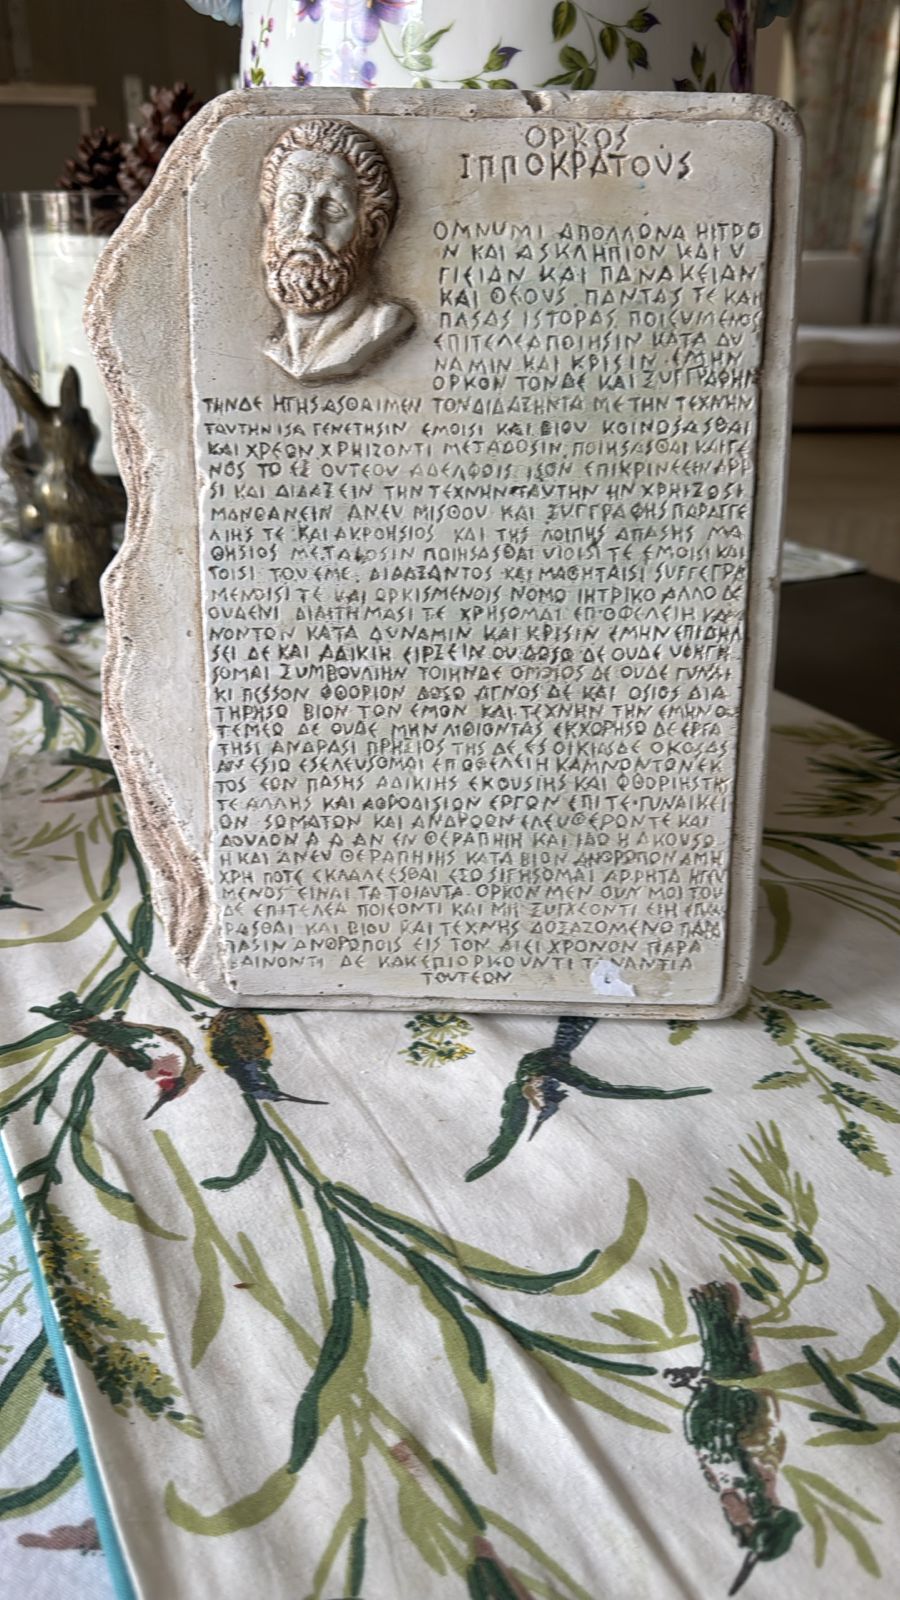 ΟΡΚΟS
ΙΠΠΟΚΡΑΤΟUS
OMNUMI ΑΠΟΛΛΩΝΑ ΗΙΤΡΟ
Ν ΚΑΙ ΑSΚΛΗΠΙΟΝ ΚΑΙ U
ΓΙΕΙΑΝ ΚΑΙ ΠΑΝΑΚΕΙΑΝ
ΚΑΙ ΘΕΟUS ΠΑΝΤΑS ΤΕ ΚΑΙ
ΠΑSΑS ΙSΤΟΡΑS ΠΟΙΕUΜΕΝΟS
ΕΠΙΤΕΛΕΑΠΟΙΗSΙΝ ΚΑΤΑ ΔU
ΝΑΜΙΝ ΚΑΙ ΚΡΙSΙΝ ΕΜΗΝ
ΟΡΚΟΝ ΤΟΝΔΕ ΚΑΙ ΞUΓΓΡΑΦΗΝ
ΤΗΝΔΕ ΗΓΗSΑSΘΑΙΜΕΝ ΤΟΝΔΙΔΑΞΗΝΤΑ ΜΕ ΤΗΝ ΤΕΧΝΗΝ
ΤΑUΤΗΝ ΙSΑ ΓΕΝΕΤΗSΙΝ ΕΜΟΙSΙ ΚΑΙ ΒΙΟU ΚΟΙΝΩSΑSΘΑΙ
ΚΑΙ ΧΡΕΩΝ ΧΡΗΙΖΟΝΤΙ ΜΕΤΑΔΟSΙΝ ΠΟΙΗSΑSΘΑΙ ΚΑΙ ΓΕ
ΝΟS ΤΟ ΕΞ ΟUΤΕΟU ΑΔΕΛΦΟΙS ΙSΟΝ ΕΠΙΚΡΙΝΕΕΙΝ ΑΡΡ
SΙ ΚΑΙ ΔΙΔΑΞΕΙΝ ΤΗΝ ΤΕΧΝΗΝ ΤΑUΤΗΝ ΗΝ ΧΡΗΙΖΟSΙ
ΜΑΝΘΑΝΕΙΝ ΑΝΕU ΜΙSΘΟU ΚΑΙ ΞUΓΓΡΑΦΗS ΠΑΡΑΓΓΕ
ΛΙΗS ΤΕ ΚΑΙ ΑΚΡΟΗSΙΟS ΚΑΙ ΤΗS ΛΟΙΠΗS ΑΠΑSΗS ΜΑ
ΘΗSΙΟS ΜΕΤΑΔΟSΙΝ ΠΟΙΗSΑSΘΑΙ UΙΟΙSΙ ΤΕ ΕΜΟΙSΙ ΚΑΙ
ΤΟΙSΙ ΤΟU ΕΜΕ ΔΙΔΑΞΑΝΤΟS ΚΑΙ ΜΑΘΗΤΑΙSΙ SUΓΓΕΓΡΑ
ΜΕΝΟΙSΙ ΤΕ ΚΑΙ ΩΡΚΙSΜΕΝΟΙS ΝΟΜΩ ΙΗΤΡΙΚΩ ΑΛΛΩ ΔΕ
ΟUΔΕΝΙ ΔΙΑΙΤΗΜΑSΙ ΤΕ ΧΡΗSΟΜΑΙ ΕΠ ΟΦΕΛΕΙΗ ΚΑΜ
ΝΟΝΤΩΝ ΚΑΤΑ ΔUΝΑΜΙΝ ΚΑΙ ΚΡΙSΙΝ ΕΜΗΝ ΕΠΙΔΗΛ
SΕΙ ΔΕ ΚΑΙ ΑΔΙΚΙΗ ΕΙΡΞΕΙΝ ΟU ΔΩSΩ ΔΕ ΟUΔΕ UΦΗΓΗ
SΟΜΑΙ ΞUΜΒΟUΛΙΗΝ ΤΟΙΗΝΔΕ ΟΜΟΙΟS ΔΕ ΟUΔΕ ΓUΝΑΙ
ΚΙ ΠΕSSΟΝ ΦΘΟΡΙΟΝ ΔΩSΩ ΑΓΝΟS ΔΕ ΚΑΙ ΟSΙΟS ΔΙΑ
ΤΗΡΗSΩ ΒΙΟΝ ΤΟΝ ΕΜΟΝ ΚΑΙ ΤΕΧΝΗΝ ΤΗΝ ΕΜΗΝ Ο
ΤΕΜΕΩ ΔΕ ΟUΔΕ ΜΗΝ ΛΙΘΙΟΝΤΑS ΕΚΧΟΡΗSΩ ΔΕ ΕΡΓΑ
ΤΗSΙ ΑΝΔΡΑSΙ ΠΡΗΞΙΟS ΤΗS ΔΕ ΕS ΟΙΚΙΑS ΔΕ ΟΚΟSΑS
ΑΝ ΕSΙΩ ΕSΕΛΕUSΟΜΑΙ ΕΠ ΩΦΕΛΕΙΗ ΚΑΜΝΟΝΤΩΝ ΕΚ
ΤΟS ΕΩΝ ΠΑSΗS ΑΔΙΚΙΗS ΕΚΟUSΙΗS ΚΑΙ ΦΘΟΡΙΗS ΤΗ
ΤΕ ΑΛΛΗS ΚΑΙ ΑΦΡΟΔΙSΙΩΝ ΕΡΓΩΝ ΕΠΙ ΤΕ ΓUΝΑΙΚΕΙ
ΩΝ SΩΜΑΤΩΝ ΚΑΙ ΑΝΔΡΩΩΝ ΕΛΕUΘΕΡΩΝ ΤΕ ΚΑΙ
ΔΟUΛΩΝ Α Δ ΑΝ ΕΝ ΘΕΡΑΠΗΙΗ ΚΑΙ ΙΔΩ Η ΑΚΟUSΩ
Η ΚΑΙ ΑΝΕU ΘΕΡΑΠΗΙΗS ΚΑΤΑ ΒΙΟΝ ΑΝΘΡΩΠΩΝ Α ΜΗ
ΧΡΗ ΠΟΤΕ ΕΚΛΑΛΕΕSΘΑΙ ΕΞΩ SΙΓΗSΟΜΑΙ ΑΡΡΗΤΑ ΗΓΕU
ΜΕΝΟS ΕΙΝΑΙ ΤΑ ΤΟΙΑUΤΑ ΟΡΚΟΝ ΜΕΝ ΟUΝ ΜΟΙ ΤΟΝ
ΔΕ ΕΠΙΤΕΛΕΑ ΠΟΙΕΟΝΤΙ ΚΑΙ ΜΗ ΞUΓΧΕΟΝΤΙ ΕΙΗ ΕΠΑU
ΡΑSΘΑΙ ΚΑΙ ΒΙΟU ΚΑΙ ΤΕΧΝΗS ΔΟΞΑΖΟΜΕΝΩ ΠΑΡΑ
ΠΑSΙΝ ΑΝΘΡΩΠΟΙS ΕΙS ΤΟΝ ΑΙΕΙ ΧΡΟΝΟΝ ΠΑΡΑ
ΒΑΙΝΟΝΤΙ ΔΕ ΚΑΚ ΕΠΙΟΡΚΟUΝΤΙ ΤΑΝΑΝΤΙΑ
ΤΟUΤΕΩΝ